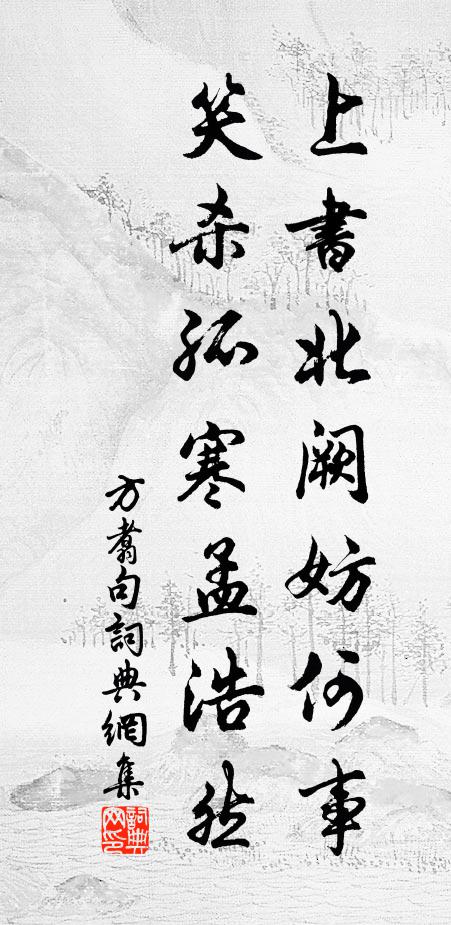 上書北闕妨何事
笑杀孤寒孟浩然
方翥句詞典網集
詞典网印